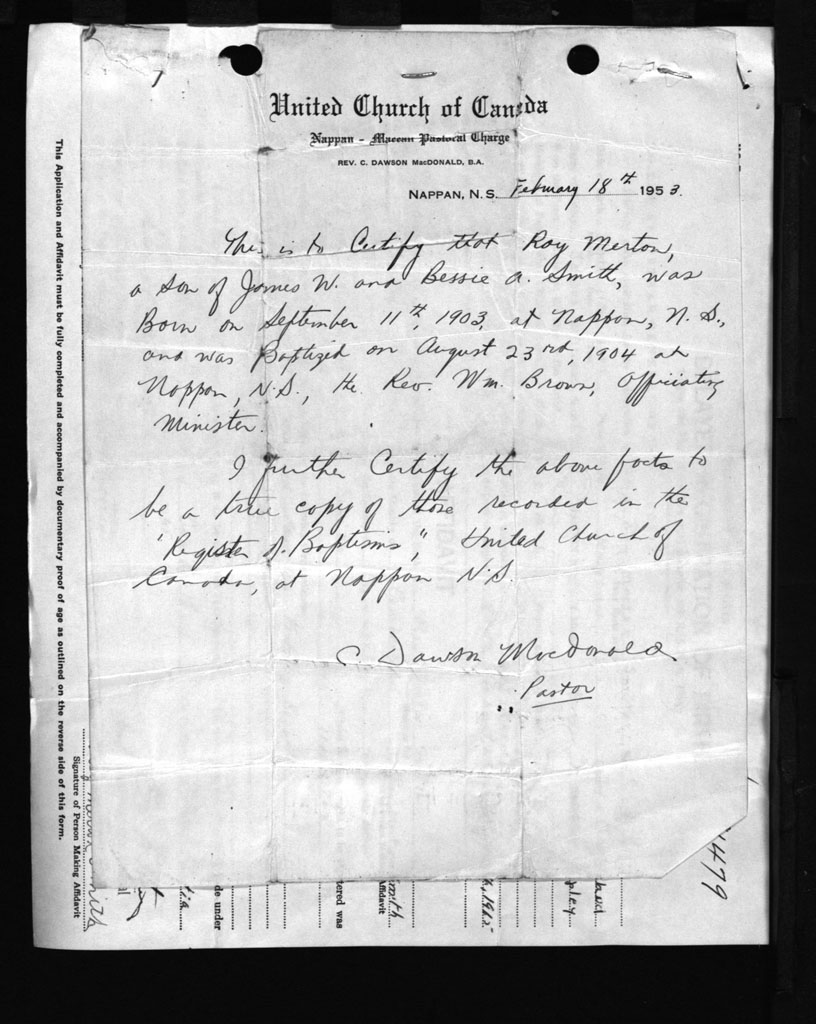 United Church of Canada
Nappan - Maccan Pastoral Charge
REV. C. DAWSON MacDONALD, B.A.
NAPPAN, N.S. February 18th 1953.
This is to Certify that Roy Merton,
a son of James W. and Bessie A. Smith, was
Born on September 11th, 1903, at Nappan, N.S.,
and was Baptized on August 23rd, 1904 at
Nappan, N.S., the Rev. Wm. Brown, Officiating
Minister.
I further Certify the above facts to
be a true copy of those recorded in the
"Register of Baptisms", United Church of
Canada, at Nappan N.S.
C. Dawson MacDonald
Pastor
This Application and Affidavit must be fully completed and accompanied by documentary proof of age as outlined on the reverse side of this form.
Smith
Signature of Person Making Affidavit
de under
tered was
Affidavit
1479